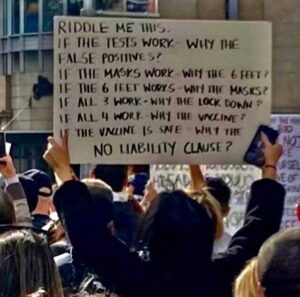 RIDDLE ME THIS.
IF THE TESTS WORK - WHY THE
FALSE POSITIVES?
IF THE MASKS WORK - WHY THE 6 FEET?
IF THE 6 FEET WORKS - WHY THE MASKS?
IF ALL 3 WORK - WHY THE LOCK DOWN?
IF ALL 4 WORK - WHY THE VACCINE?
IF THE VACCINE IS SAFE - WHY THE
NO LIABILITY CLAUSE?